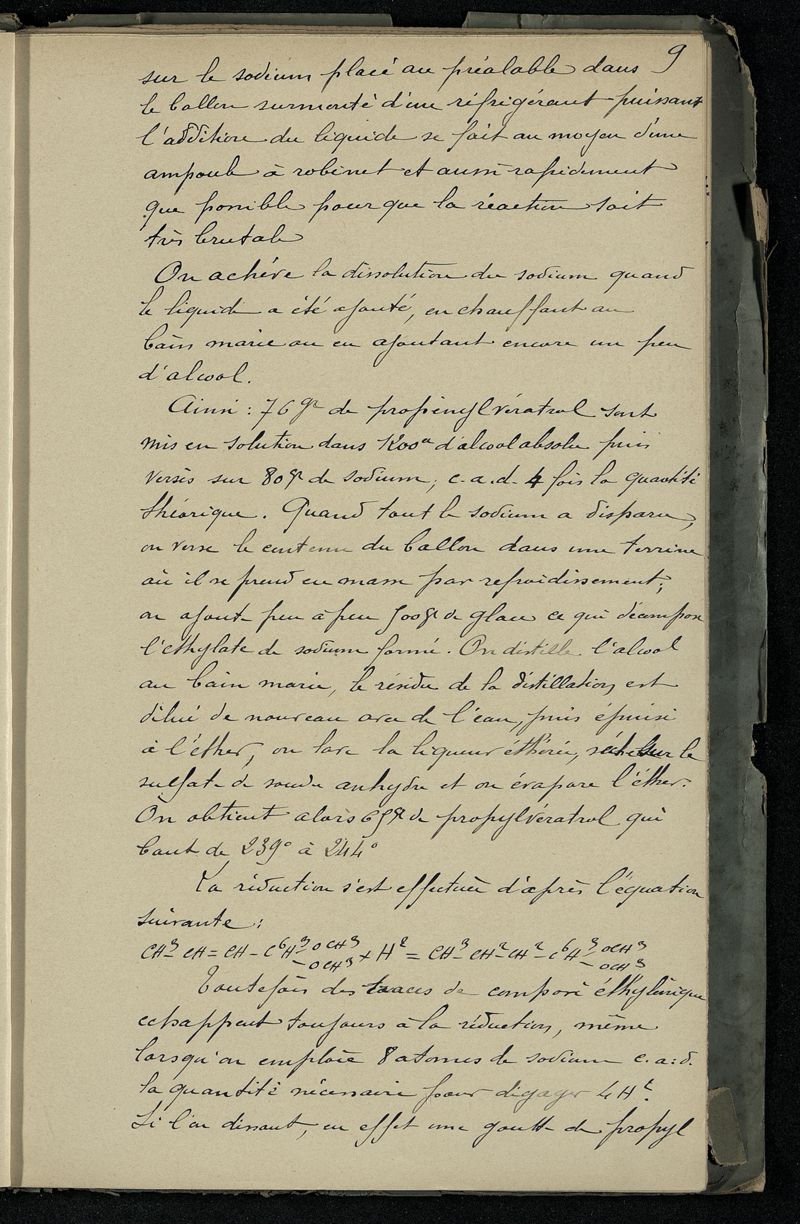 9
sur le sodium placé au préalable dans
le ballon surmonté d'un réfrigérant puissant
l'addition du liquide se fait au moyen d'une
ampoule à robinet et aussi rapidement
que possible pour que la réaction soit
très brutale
On achève la dissolution du sodium quand
le liquide a été ajouté, en chauffant au
bain marie ou en ajoutant encore un peu
d'alcool.
Ainsi : 76 gr de propénylvératrol sont
mis en solution dans d'alcool absolu puis
versés sur 80gr de sodium, c.a.d. 4 fois la quantité
théorique. Quand tout le sodium a disparu,
on verse le contenu du ballon dans une terrine
où il se prend en masse par refroidissement;
on ajoute peu à peu 500gr de glace ce qui décompose
l'éthylate de sodium formé. On distille l'alcool
au bain marie, le résidu de la distillation est
dilué de nouveau avec de l'eau, puis épuisé
à l'éther, on lave la liqueur éthérée, sèche sur le
sulfate de soude anhydre et on évapore l'éther.
On obtient alors 65gr de propylvératrol qui
bout de 239° à 244°
La réduction s'est effectuée d'après l'équation
suivante :
CH³-CH=CH-C⁶H³-OCH³-OCH³ + H² = CH³-CH²-CH²-C⁶H³-OCH³-OCH³
Toutefois des traces de composé éthylénique
echappent toujours à la réduction, même
lorsqu'on emploie 8 atomes de sodium c.a.d.
la quantité nécessaire pour dégager 4H².
Si l'on dissout, en effet une goutte de propyl